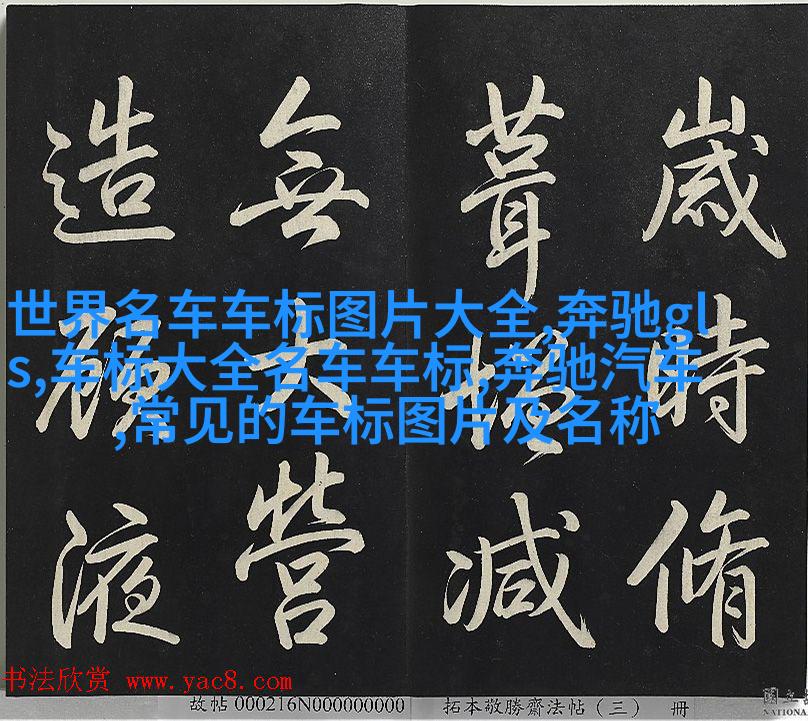 歲時脩
葺增減
無大營
造顧液
世界名车车标图片大全,奔驰gl
s,车标大全名车车标,奔驰汽车
,常见的车标图片及名称
书法欣赏 www.yac8.com
故帖 000216N000000000 拓本敬勝齋法帖（三） 冊
國立
NATIONA